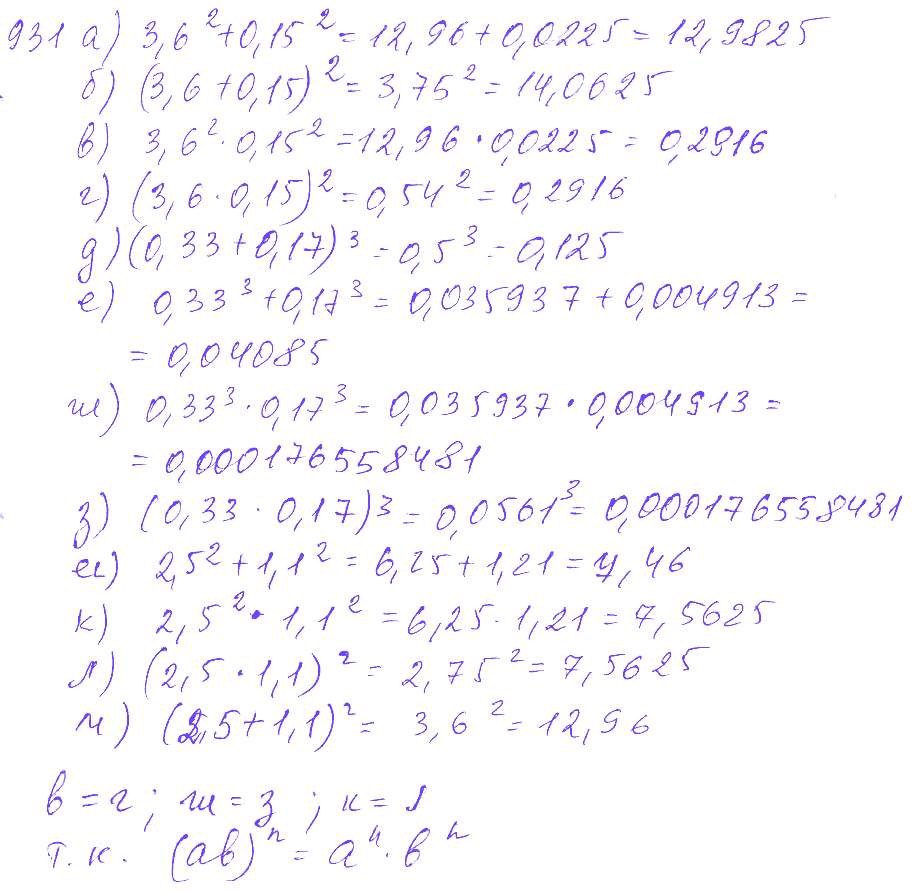 931 а) 3,6² + 0,15² = 12,96 + 0,0225 = 12,9825
б) (3,6 + 0,15)² = 3,75² = 14,0625
в) 3,6² · 0,15² = 12,96 · 0,0225 = 0,2916
г) (3,6 · 0,15)² = 0,54² = 0,2916
д) (0,33 + 0,17)³ = 0,5³ = 0,125
е) 0,33³ + 0,17³ = 0,035937 + 0,004913 =
= 0,04085
ж) 0,33³ · 0,17³ = 0,035937 · 0,004913 =
= 0,000176558481
з) (0,33 · 0,17)³ = 0,0561³ = 0,000176558481
и) 2,5² + 1,1² = 6,25 + 1,21 = 7,46
к) 2,5² · 1,1² = 6,25 · 1,21 = 7,5625
л) (2,5 · 1,1)² = 2,75² = 7,5625
м) (2,5 + 1,1)² = 3,6² = 12,96
в = г ; ж = з ; к = л
т. к. (ab)ⁿ = aⁿ · bⁿ